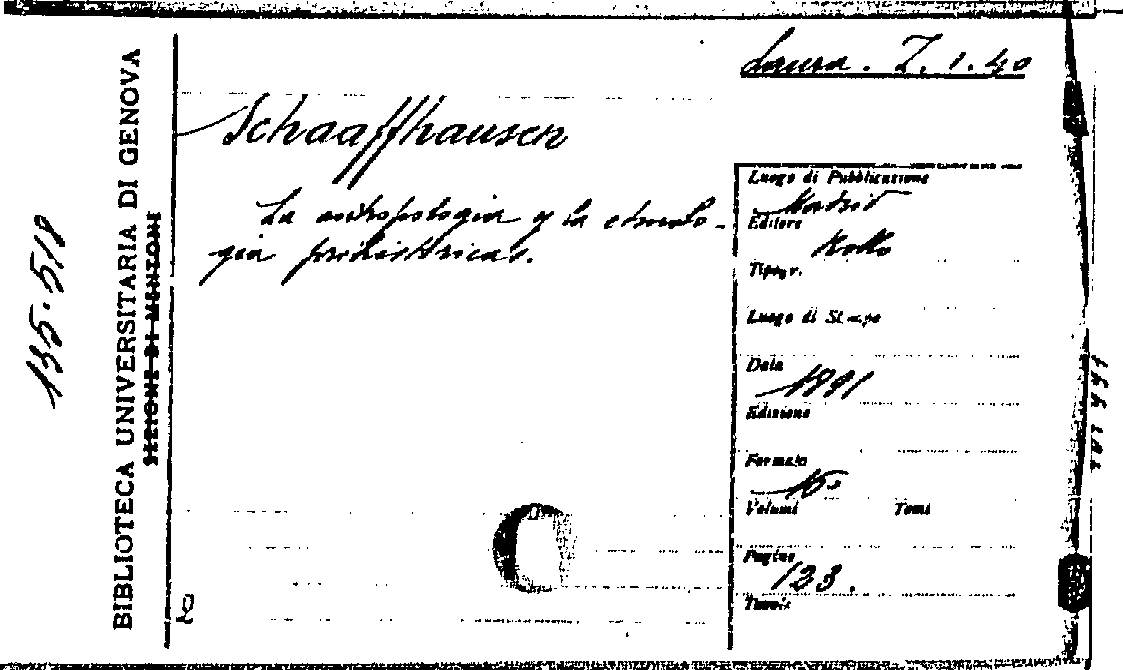 Laura. Z. 1. 40
Schaaffhausen
La antropologia y la etnolo-
gia prehistóricas.
Luogo di Pubblicazione
Madrid
Editore
Tipogr.
Luogo di Stampa
Data
1891
Edizione
Formato
16º
Volumi Tomi
Pagine
123.
Tavole
BIBLIOTECA UNIVERSITARIA DI GENOVA
SEZIONE DI MENZONI
135.518